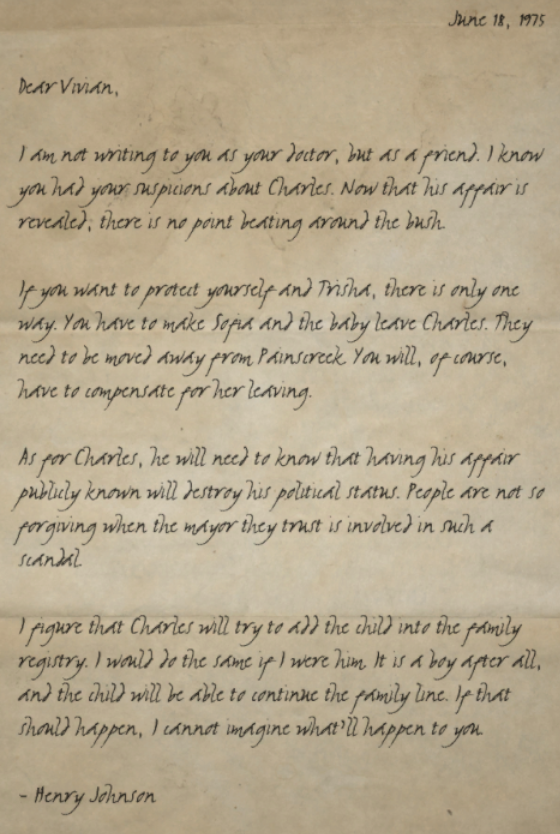 June 18, 1975
Dear Vivian,
I am not writing to you as your doctor, but as a friend. I know
you had your suspicions about Charles. Now that his affair is
revealed, there is no point beating around the bush.
If you want to protect yourself and Trisha, there is only one
way. You have to make Sofia and the baby leave Charles. They
need to be moved away from Painscreek. You will, of course,
have to compensate for her leaving.
As for Charles, he will need to know that having his affair
publicly known will destroy his political status. People are not so
forgiving when the mayor they trust is involved in such a
scandal.
I figure that Charles will try to add the child into the family
registry. I would do the same if I were him. It is a boy after all,
and the child will be able to continue the family line. If that
should happen, I cannot imagine what'll happen to you.
- Henry Johnson